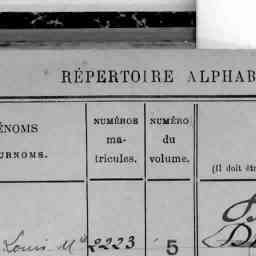 RÉPERTOIRE ALPHAB
ÉNOMS
URNOMS.
NUMÉROS
ma-
tricules.
NUMÉRO
du
volume.
(Il doit êt
Louis M
2223
5